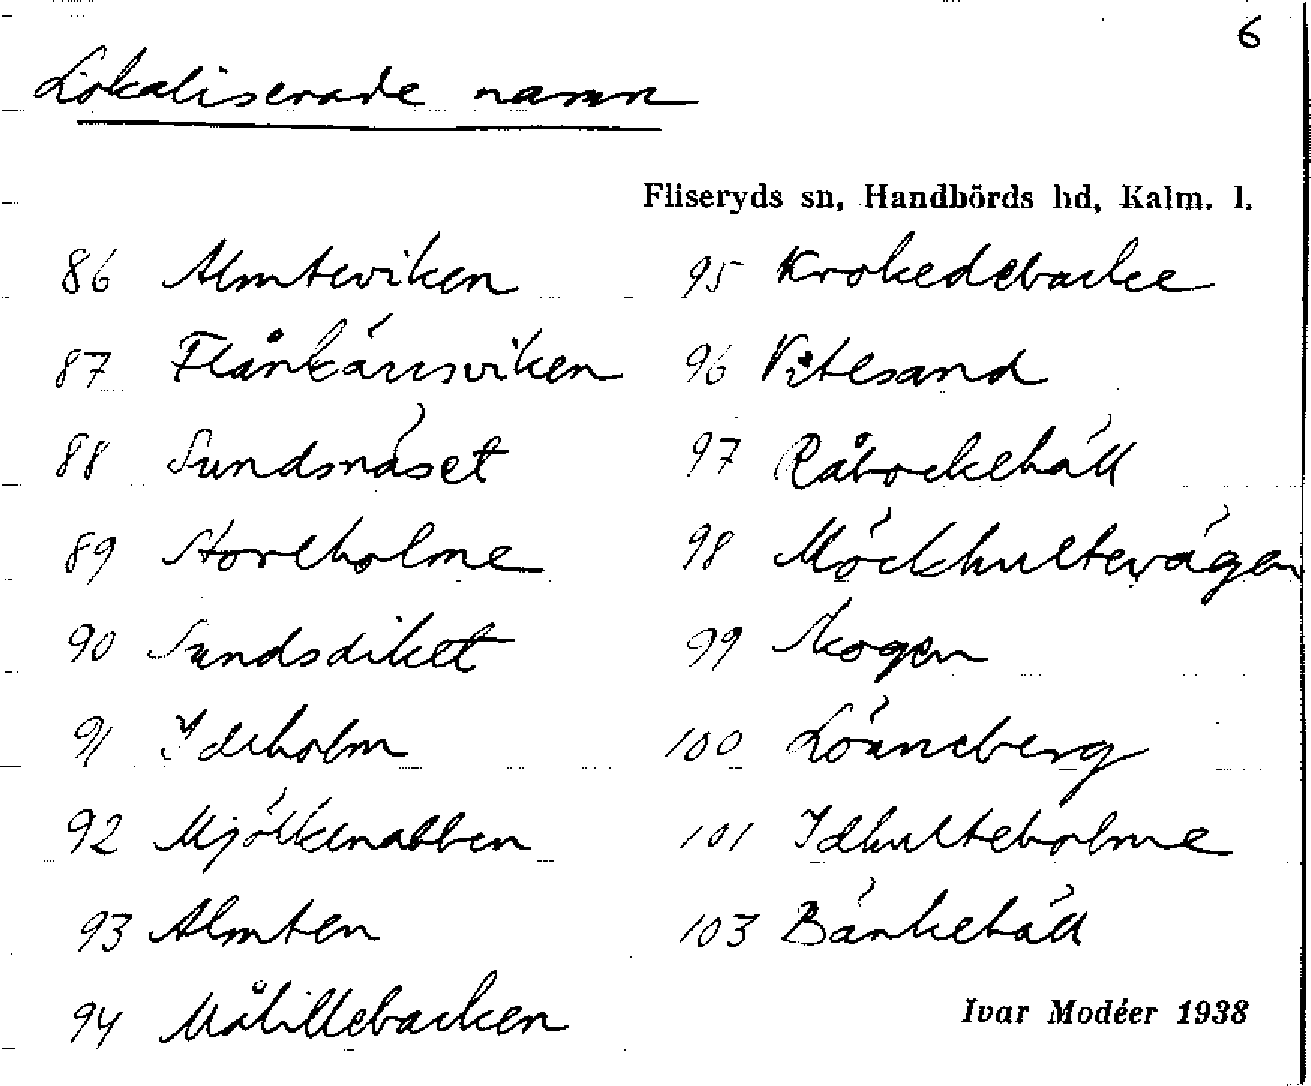 6
Lokaliserade namn
Fliseryds sn, Handbörds hd, Kalm. l.
86 Almteviken
87 Flånkärrsviken
88 Sundsnäset
89 Storeholme
90 Sundsdiket
91 Ideholm
92 Mjölkenabben
93 Almten
94 Målillebacken
95 Krokedebacke
96 Vitesand
97 Råbockehäll
98 Möckhultevägen
99 Skogen
100 Lönneberg
101 Idhulteholme
103 Bänkehäll
Ivar Modéer 1938